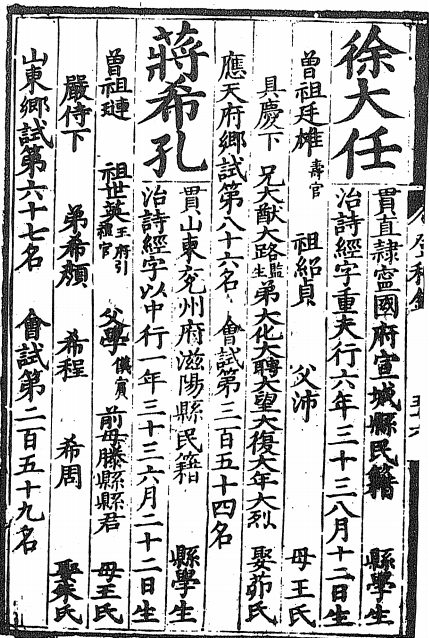 徐大任
貫直隸寧國府宣城縣民籍 縣學生
治詩經字重夫行六年三十三八月十二日生
曾祖廷雄壽官 祖紹貞 父沛 母王氏
具慶下 兄大猷大路監生 弟大化大聘大望大復大年大烈 娶茆氏
應天府鄉試第八十六名 會試第三百五十四名
蔣希孔
貫山東兗州府滋陽縣民籍 縣學生
治詩經字以中行一年三十三六月二十二日生
曾祖璉 祖世英王府引禮官 父學儀賓 前母滕縣縣君 母王氏
嚴侍下 弟希顏 希程 希周 聚朱氏
山東鄉試第六十七名 會試第二百五十九名